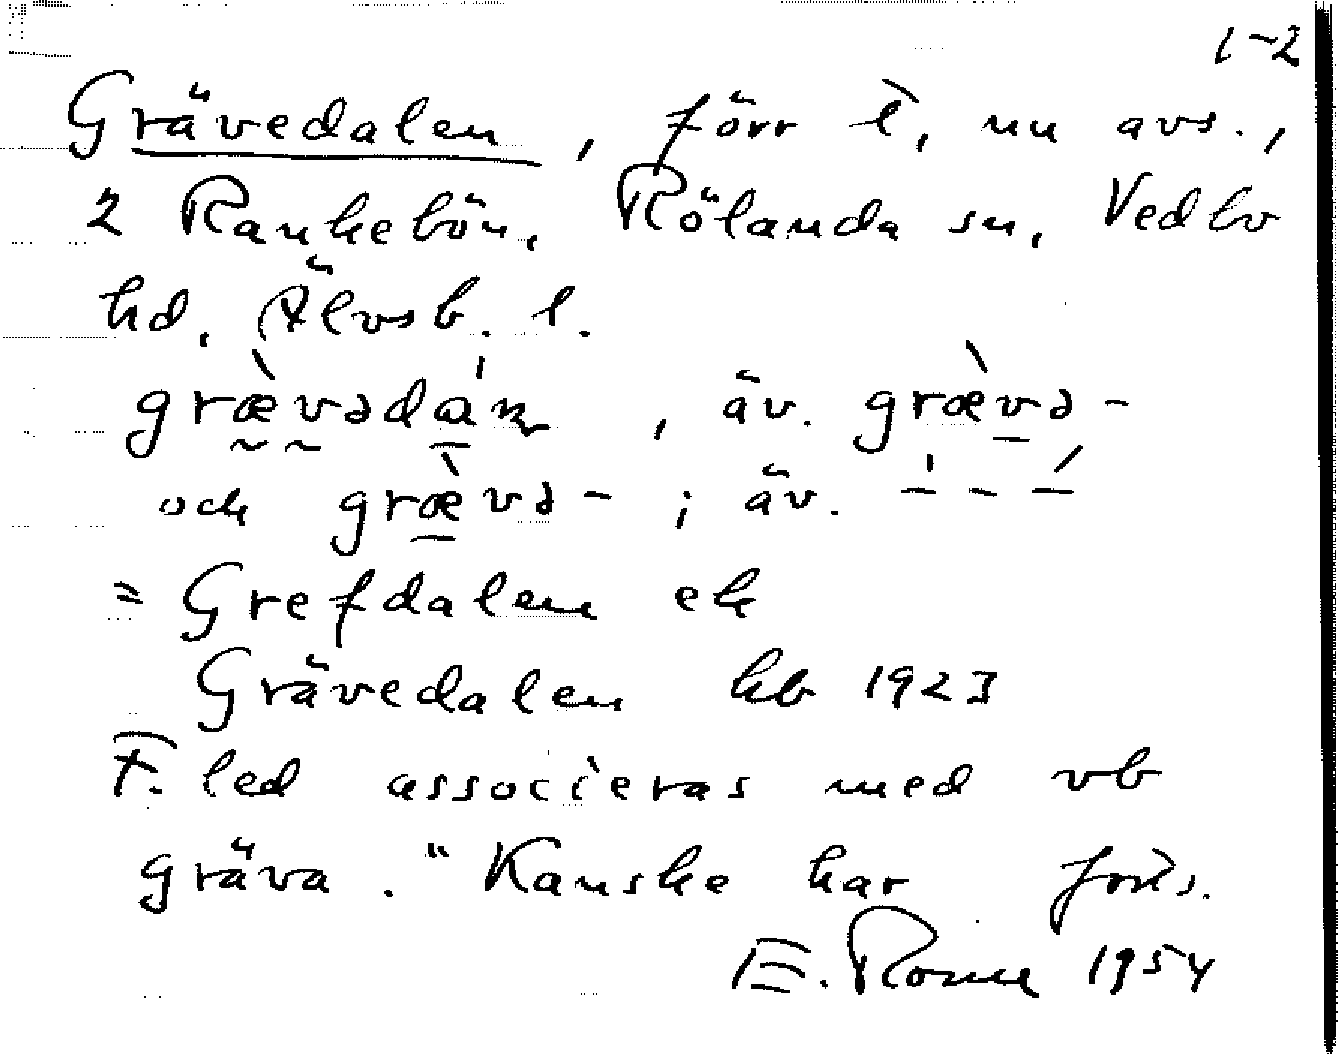 1-2
Grävedalen, förr l, nu avs.,
2 Rankebön, Rölanda sn, Vedbo
hd, Älvsb. l.
grævədan, äv. grævə-
och grævə-; äv.
= Grefdalen ek
Grävedalen kb 1923
F. led associeras med vb
gräva. "Kanske har fors.
E. 1954